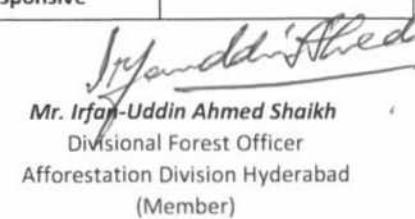 sponsive
Irfanuddin Ahmed
Mr. Irfan-Uddin Ahmed Shaikh
Divisional Forest Officer
Afforestation Division Hyderabad
(Member)